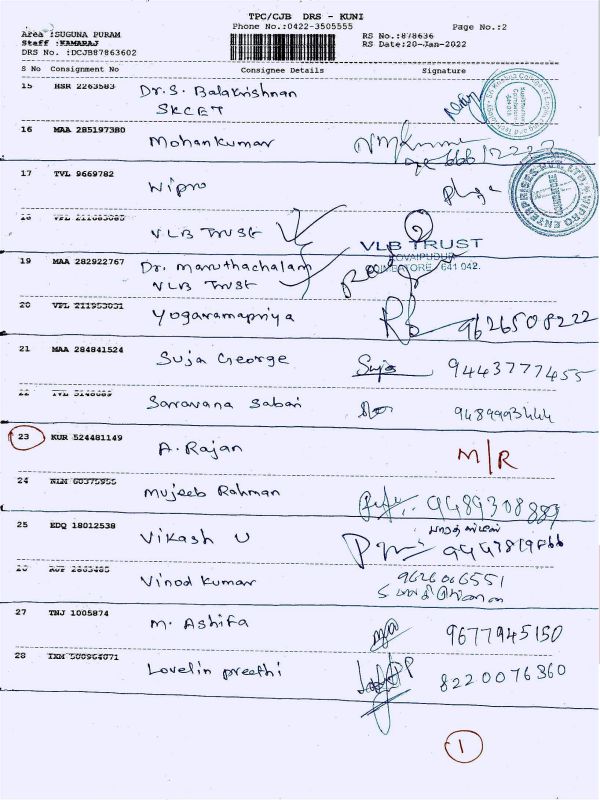 TPC/CJB DRS - KUNI
Phone No.:0422-3505555 Page No.:2
Area :SUGUNA PURAM RS No.:878636
Staff :KAMARAJ RS Date:20-Jan-2022
DRS No. :DCJB87863602
S No Consignment No Consignee Details Signature
15 HSR 2263583 Dr.S. Balakrishnan
SKCET
16 MAA 285197380 Mohankumar
17 TVL 9669782 Wipro
WIPRO ENTERPRISES PVT. LTD.
18 VLB TRUST
VLB TRUST
KOVAIPUDUR
COIMBATORE 641 042.
19 MAA 282922767 Dr. Maruthachalam
VLB Trust
20 VPL 211953031 Yogaramapriya 9626508222
21 MAA 284841524 Suja George Suja 9443777455
22 TVL 3148689 Saravana Sabari 9489993444
23 KUR 524481149 A. Rajan M/R
24 NLM 60375955 Mujeeb Rahman 9489308889
25 EDQ 18012538 Vikash U
26 Vinod Kumar 9626066551
27 TNJ 1005874 M. Ashifa 9677945150
28 TXM 500964071 Lovelin preethi 8220076360
1